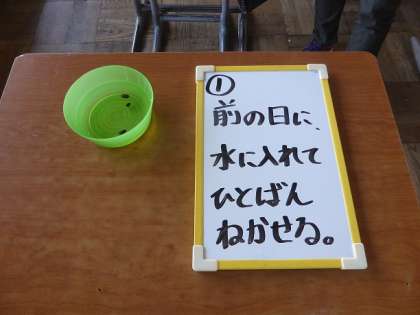 ①
前の日に、
水に入れて
ひとばん
ねかせる。